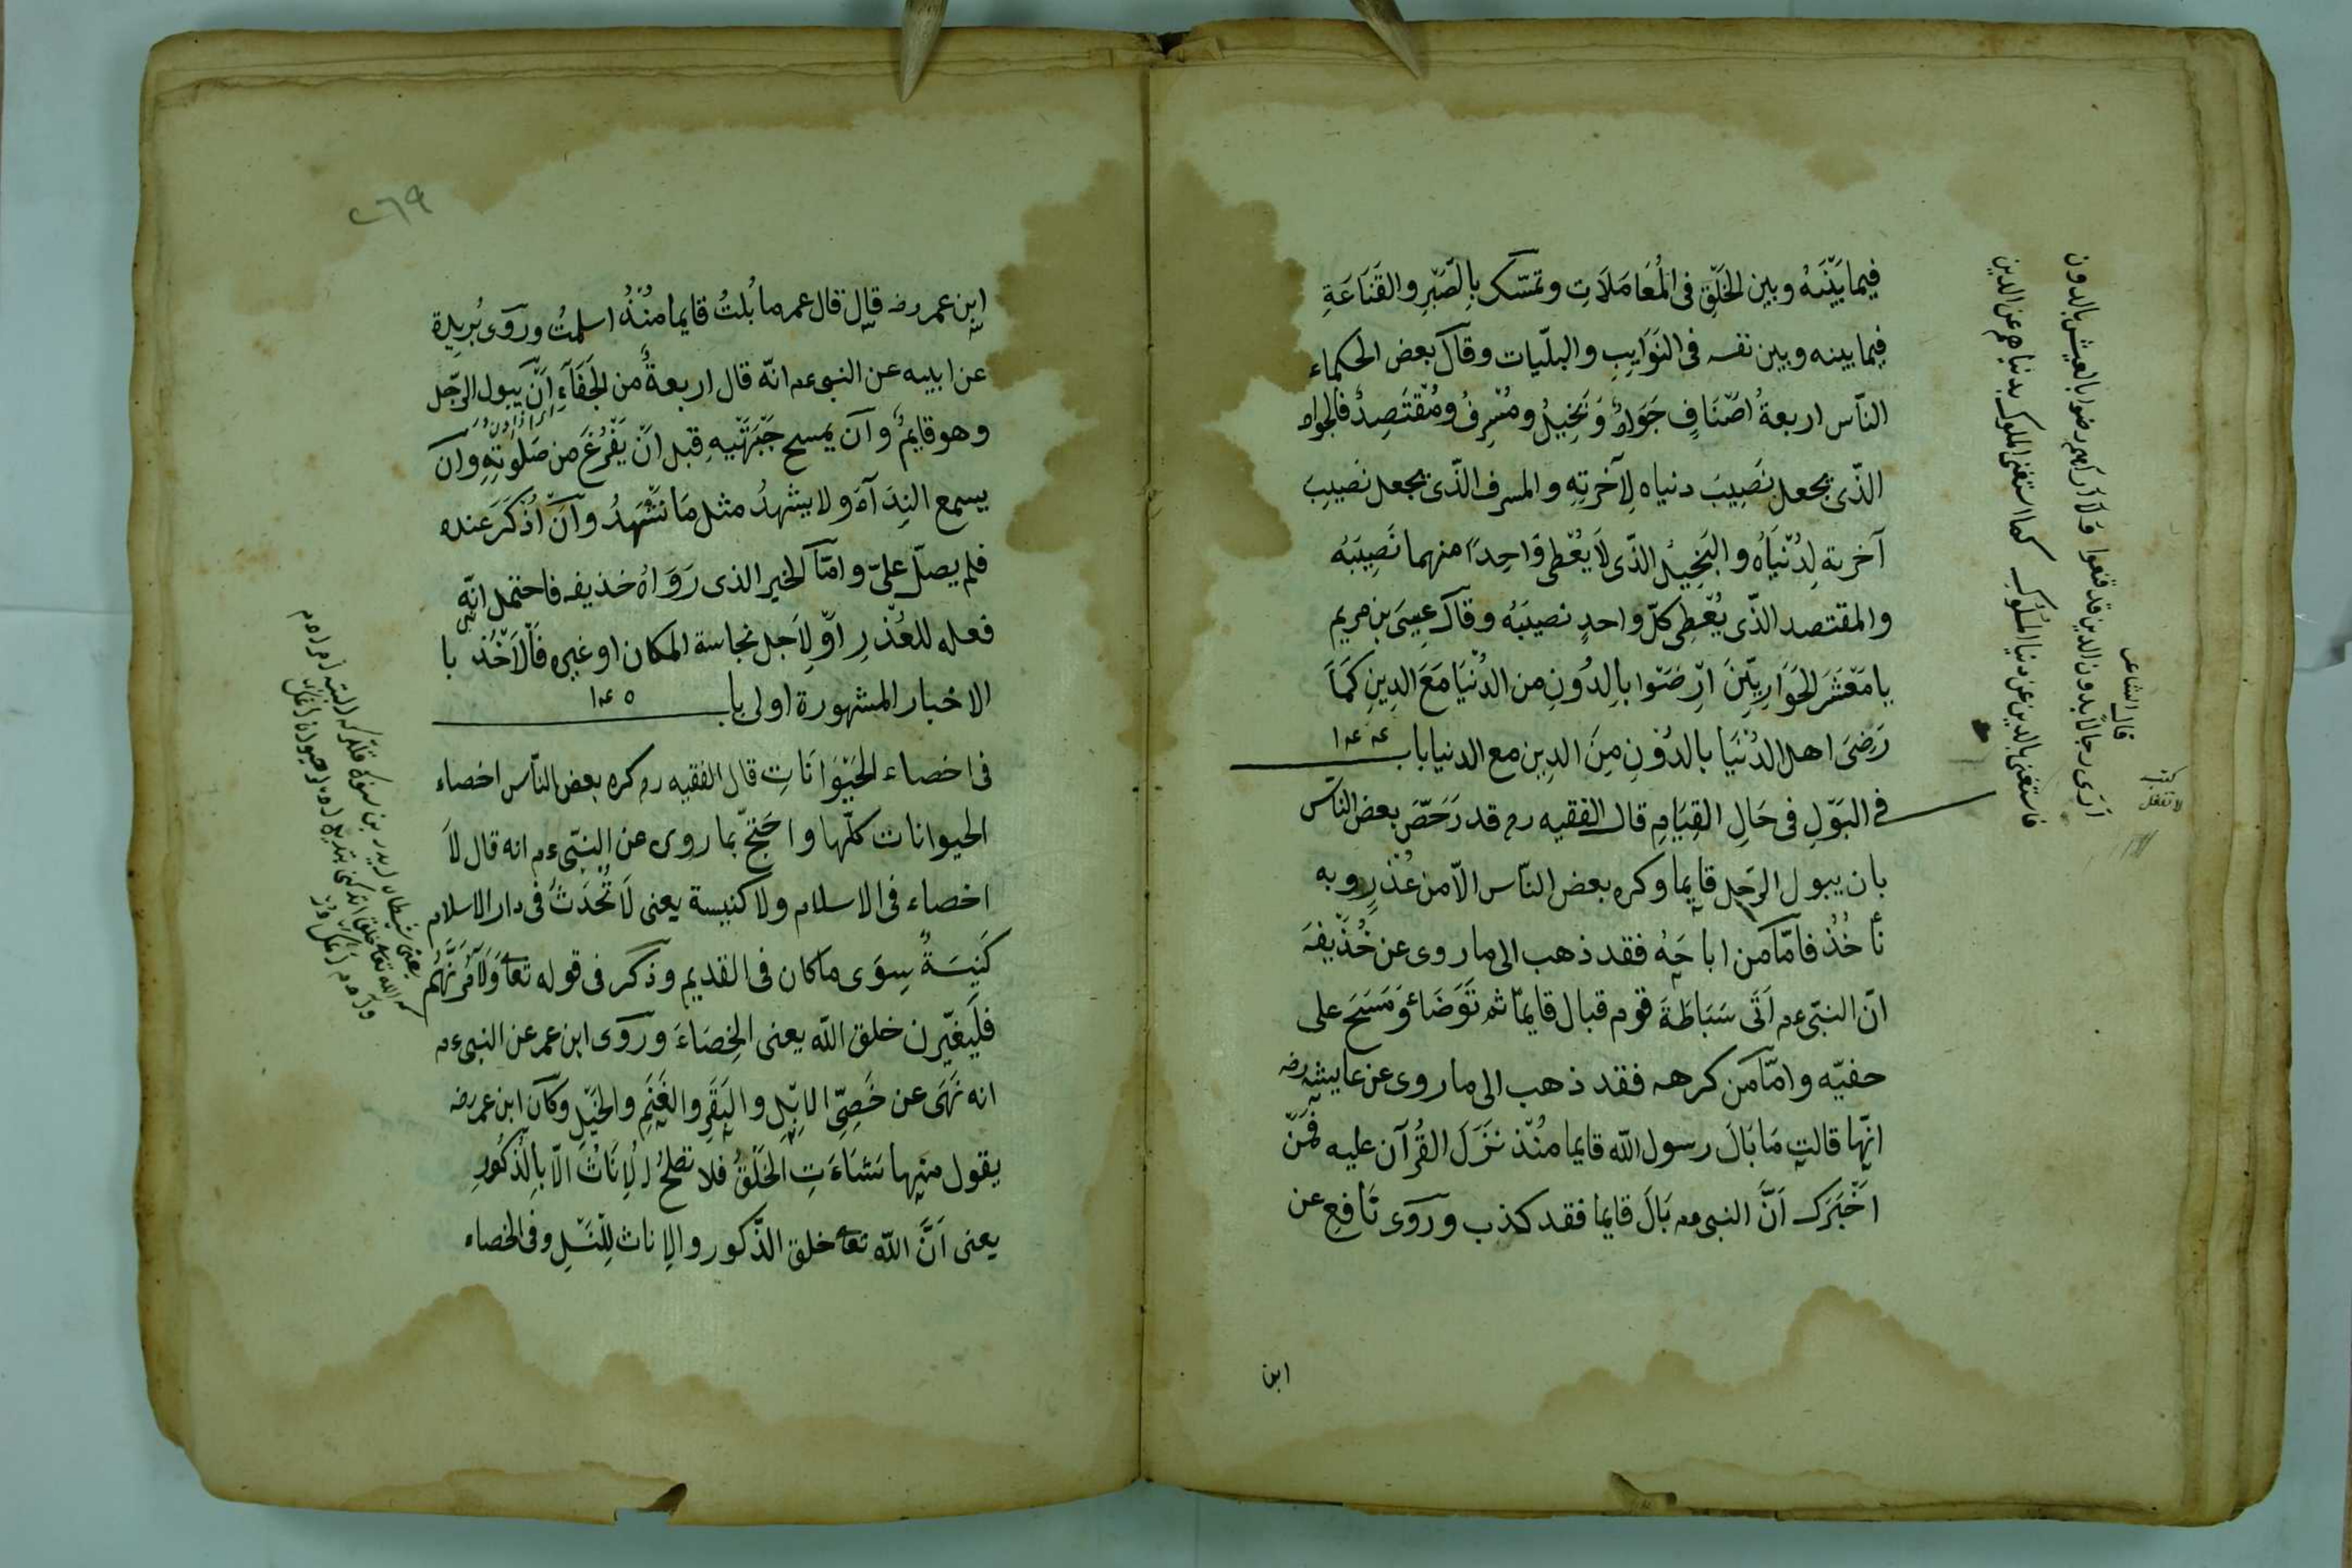 فيما بَيْنَهُ وبين الخَلْقِ فى المُعَامَلَاتِ وتمسّك بِالصَّبْرِ والقَنَاعَةِ
فيما بينه وبين نفسه فى النَوَايِبِ والبليّات وقَالَ بعض الحكماء
النّاس اربعةُ اصْنَافٍ جَوَادٌ وَبَخِيلٌ ومُسْرِفٌ ومُقْتَصِدٌ فالجواد
الذّى يجعل نَصِيبَ دنياه لِآخرَتِهِ والمسرف الذّى يجعل نَصِيبَ
آخرته لِدُنْيَاهُ والبَخِيلُ الذّى لَا يُعْطِى وَاحِدًا منهما نَصِيبَهُ
والمقتصد الذّى يُعْطِى كلّ واحدٍ نصيبَهُ وقَالَ عِيسَى بن مريم
يا مَعْشَرَ الحَوَارِيِّينَ ارْضَوْا بِالدُونِ من الدُنْيَا مَعَ الدِينِ كَمَا
رَضِىَ اهل الدُنْيَا بالدُوْنِ مِنَ الدِينِ مع الدنيا باب ١٤٤
فى البَوْلِ فى حَالِ القِيَامِ قال الفقيه رح قد رَخَّصَ بعض الناس
بان يبول الرَجل قايما وكره بعض النّاس الّا من عُذْرٍ وبه
نأخُذُ فامّا من اباحَهُ فقد ذهب الى ما روى عن حُذَيْفَةَ
انّ النبّى عم اَتَى سَبَاطَةَ قوم فبال قايمًا ثم تَوَضَأ وَمَسَحَ على
خفيّه وامّا من كرهه فقد ذهب الى ما روى عن عايشة رض
انّها قالت مَا بَالَ رسول الله قايما مُنْذُ نَزَلَ القُرآن عليه فَمَنْ
اخْبَرَكَ اَنَّ النبى عم بَالَ قايما فقد كذب ورَوَى نَافِع عن
ابن
قال الشاعر
ارَى رجالًا بدون الدين قد قنعوا ولا اراهم رضوا بالعيش بالدون
فاستغن بالدين عن دنيا المُلُوكِ كما استغنى الملوك بدنياهم عن الدين
٢٦٩
ابن عمر رض قال قال عمر ما بُلتُ قايما مُنْذُ اسلمتُ ورَوَى بُرَيدة
عن ابيه عن النبى عم انّه قال اربعةٌ من الجَفَآءِ اَنْ يبول الرّجل
وهو قايمٌ وَان يمسح جَبْهَتَيهِ قبل انْ يَفْرُغَ من صَلَوتِهِ وَان
يسمع النِدَآءَ ولا يشهدُ مثل مَا تَشْهَدُ وَانْ اُذْكَرَ عنده
فلم يصلّ علىّ وامّا الخبر الذى رَوَاهُ حذيفه فاحتمل انّه
فعله للعُذْرِ اوْ لِاَجل نجاسة المكان او غيره فَالْاَخْذُ با
الاخبار المشهورة اولى باب ١٤٥
فى اخصاء الحَيْوَانَاتِ قال الفقيه رح كره بعض النّاس اخصاء
الحيوانات كلّها واحَتجّ بما روى عن النبّى عم انه قال لَا
اخصاء فى الاسلام ولا كنيسة يعنى لَا تُحْدَثُ فى دار الاسلام
كَنِيسَةٌ سِوَى ما كان فى القديم وذكر فى قوله تعا وَلَآمُرَنَّهُم
فلَيغيّرن خلق الله يعنى الخِصَاءَ ورَوَى ابن عمر عن النبى عم
انه نَهَى عن خَصِىّ الاِبِلِ والبَقَرِ والغَنَمِ والخَيْلِ وكَان ابن عمر رض
يقول منها نَشَاءَتِ الخَلْقُ فلا تصلحُ الْاِنَاثُ الّا بِالذُكُورِ
يعنى اَنَّ الله تعا خلق الذّكور والاِناث لِلنَّسْلِ وفى الخصاء